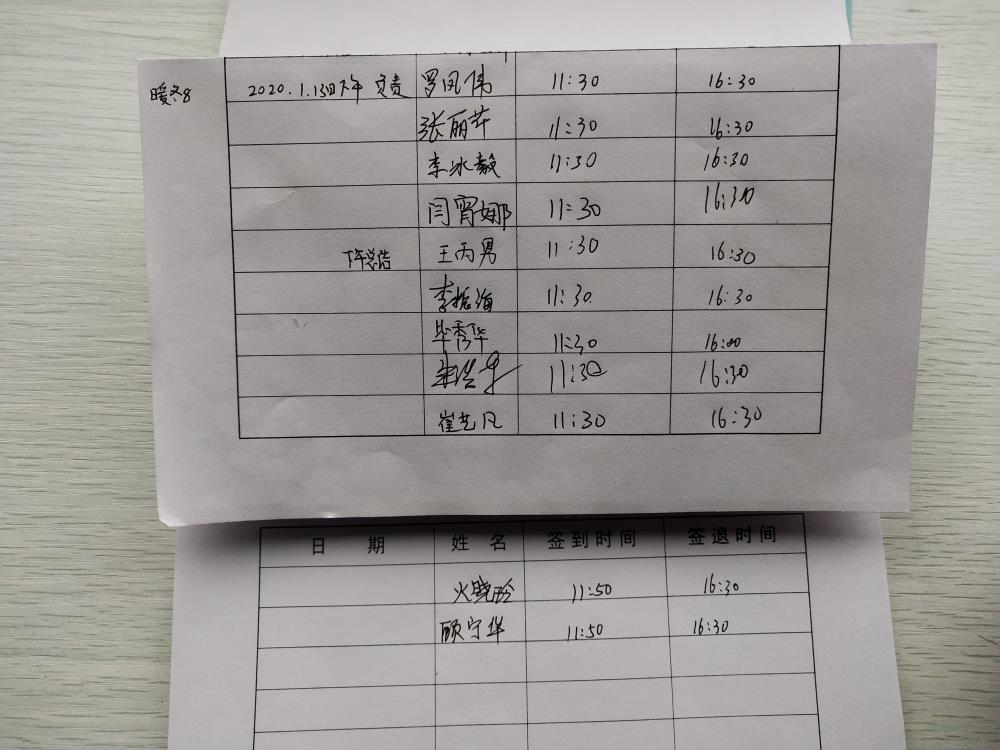 暖冬8
2020.1.13日下午 负责 罗凤伟 11:30 16:30
张丽苹 11:30 16:30
李冰毅 11:30 16:30
闫霄娜 11:30 16:30
下午总结 王丙男 11:30 16:30
李振海 11:30 16:30
毕秀华 11:30 16:00
11:30 16:30
崔艺凡 11:30 16:30
日 期 姓 名 签到时间 签退时间
火晓玲 11:50 16:30
顾宁华 11:50 16:30